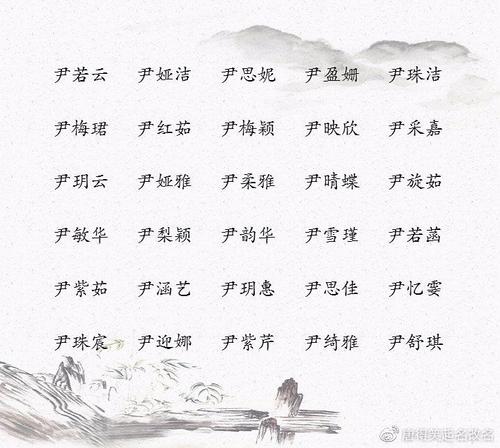 尹若云 尹娅洁 尹思妮 尹盈姗 尹珠洁
尹梅珺 尹红茹 尹梅颖 尹映欣 尹采嘉
尹玥云 尹娅雅 尹柔雅 尹晴蝶 尹旋茹
尹敏华 尹梨颖 尹韵华 尹雪瑾 尹若菡
尹紫茹 尹涵艺 尹玥惠 尹思佳 尹忆雯
尹珠宸 尹迎娜 尹紫芹 尹绮雅 尹舒琪
唐得笑起名改名